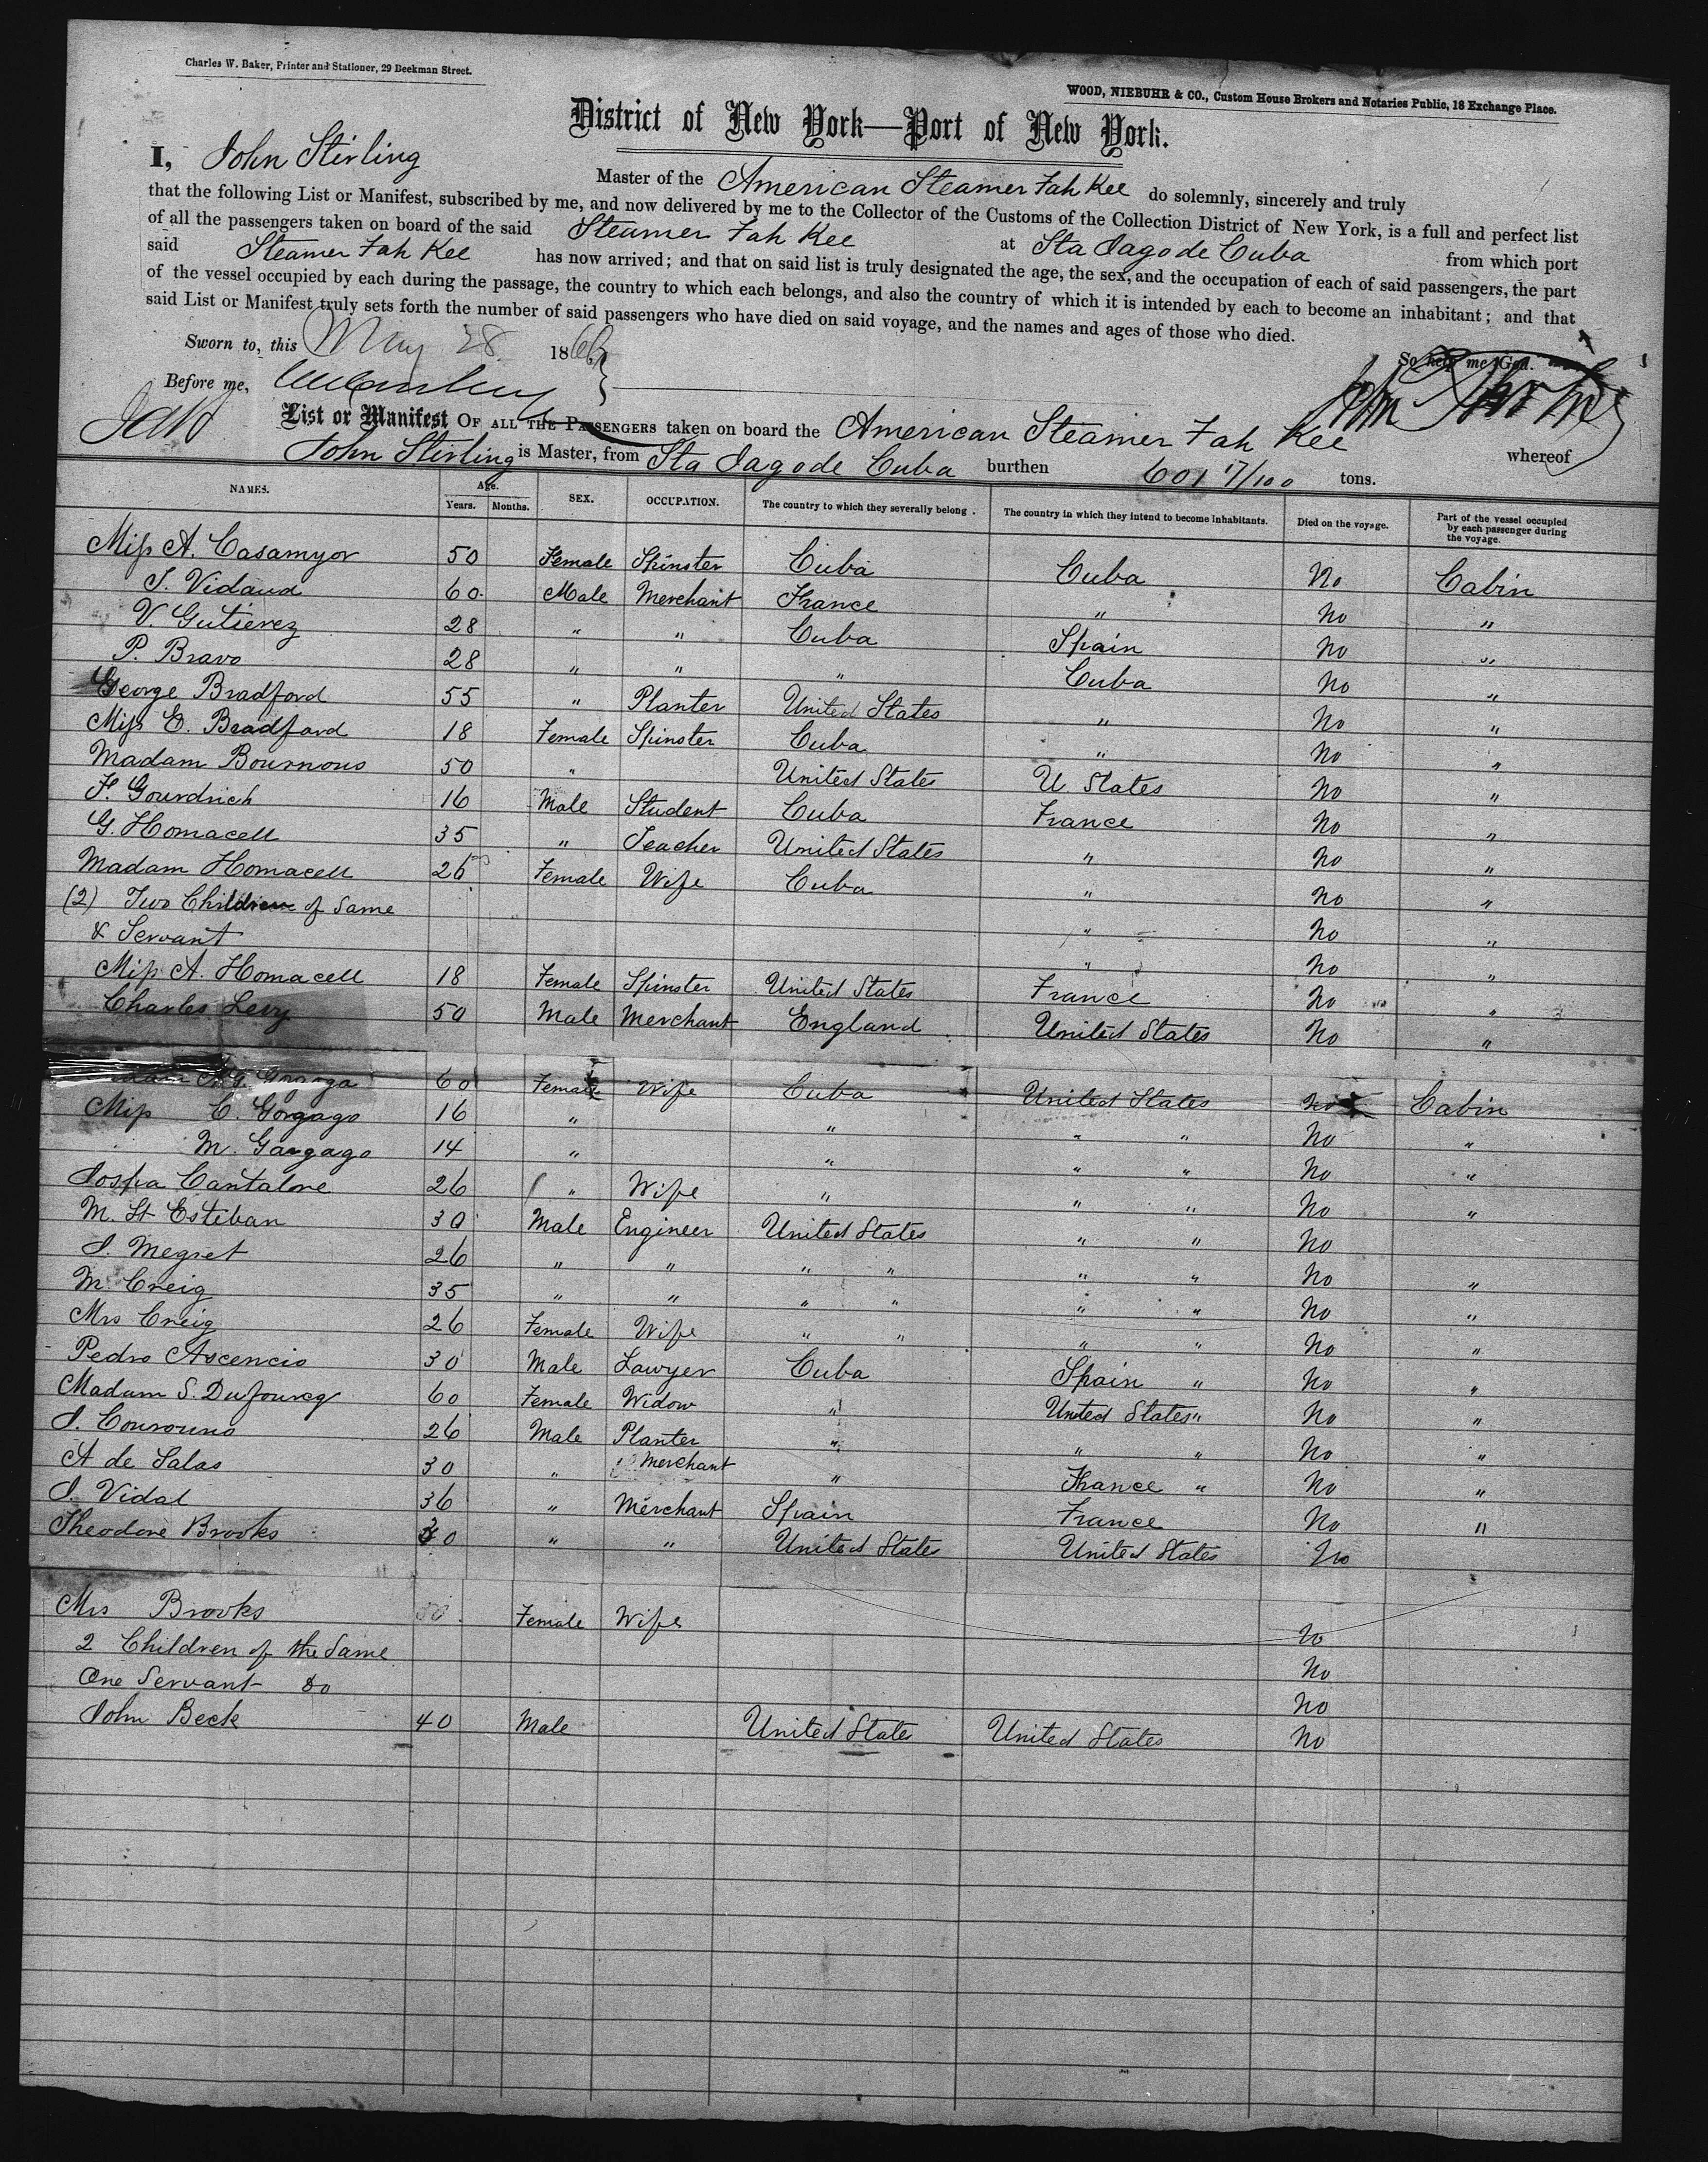 Charles W. Baker, Printer and Stationer, 29 Beekman Street.
WOOD, NIEBUHR & CO., Custom House Brokers and Notaries Public, 18 Exchange Place.
District of New York—Port of New York.
I, John Stirling Master of the American Steamer Fah Kee do solemnly, sincerely and truly
that the following List or Manifest, subscribed by me, and now delivered by me to the Collector of the Customs of the Collection District of New York, is a full and perfect list
of all the passengers taken on board of the said Steamer Fah Kee at Sta Iago de Cuba from which port
said Steamer Fah Kee has now arrived; and that on said list is truly designated the age, the sex, and the occupation of each of said passengers, the part
of the vessel occupied by each during the passage, the country to which each belongs, and also the country of which it is intended by each to become an inhabitant; and that
said List or Manifest truly sets forth the number of said passengers who have died on said voyage, and the names and ages of those who died.
Sworn to, this May 28 1866 So help me God.
Before me,
List or Manifest OF ALL THE PASSENGERS taken on board the American Steamer Fah Kee whereof
John Stirling is Master, from Sta Iago de Cuba burthen 601 17/100 tons.
NAMES. Age. Years. Months. SEX. OCCUPATION. The country to which they severally belong. The country in which they intend to become inhabitants. Died on the voyage. Part of the vessel occupied by each passenger during the voyage.
Miss A. Casamyor 50 Female Spinster Cuba Cuba No Cabin
J. Vidaud 60 Male Merchant France " No "
V. Gutierez 28 " " Cuba Spain No "
P. Bravo 28 " " " Cuba No "
George Bradford 55 " Planter United States " No "
Miss E. Bradford 18 Female Spinster Cuba " No "
Madam Bournous 50 " United States U. States No "
F. Gourdrich 16 Male Student Cuba France No "
G. Homacell 35 " Teacher United States " No "
Madam Homacell 26 Female Wife Cuba " No "
(2) Two Children of Same " No "
& Servant " No "
Miss A. Homacell 18 Female Spinster United States France No "
Charles Levy 50 Male Merchant England United States No "
60 Female Wife Cuba United States No Cabin
Miss C. Gongago 16 " " " " No "
M. Gongago 14 " " " " No "
Jospa Cantalone 26 " Wife " " " No "
M. St Estiban 30 Male Engineer United States " " No
J. Megret 26 " " " " " " No "
M. Creig 35 " " " " " " No "
Mrs Creig 26 Female Wife " " " " No "
Pedro Ascencio 30 Male Lawyer Cuba Spain " No "
Madam S. Dufourcq 60 Female Widow " United States " No "
J. Courouno 26 Male Planter " " " No "
A de Salas 30 " Merchant " France " No "
J. Vidal 36 " Merchant Spain France No "
Theodore Brooks 30 " " United States United States No
Mrs Brooks 30 Female Wife No
2 Children of the Same No
One Servant do No
John Beck 40 Male United States United States No